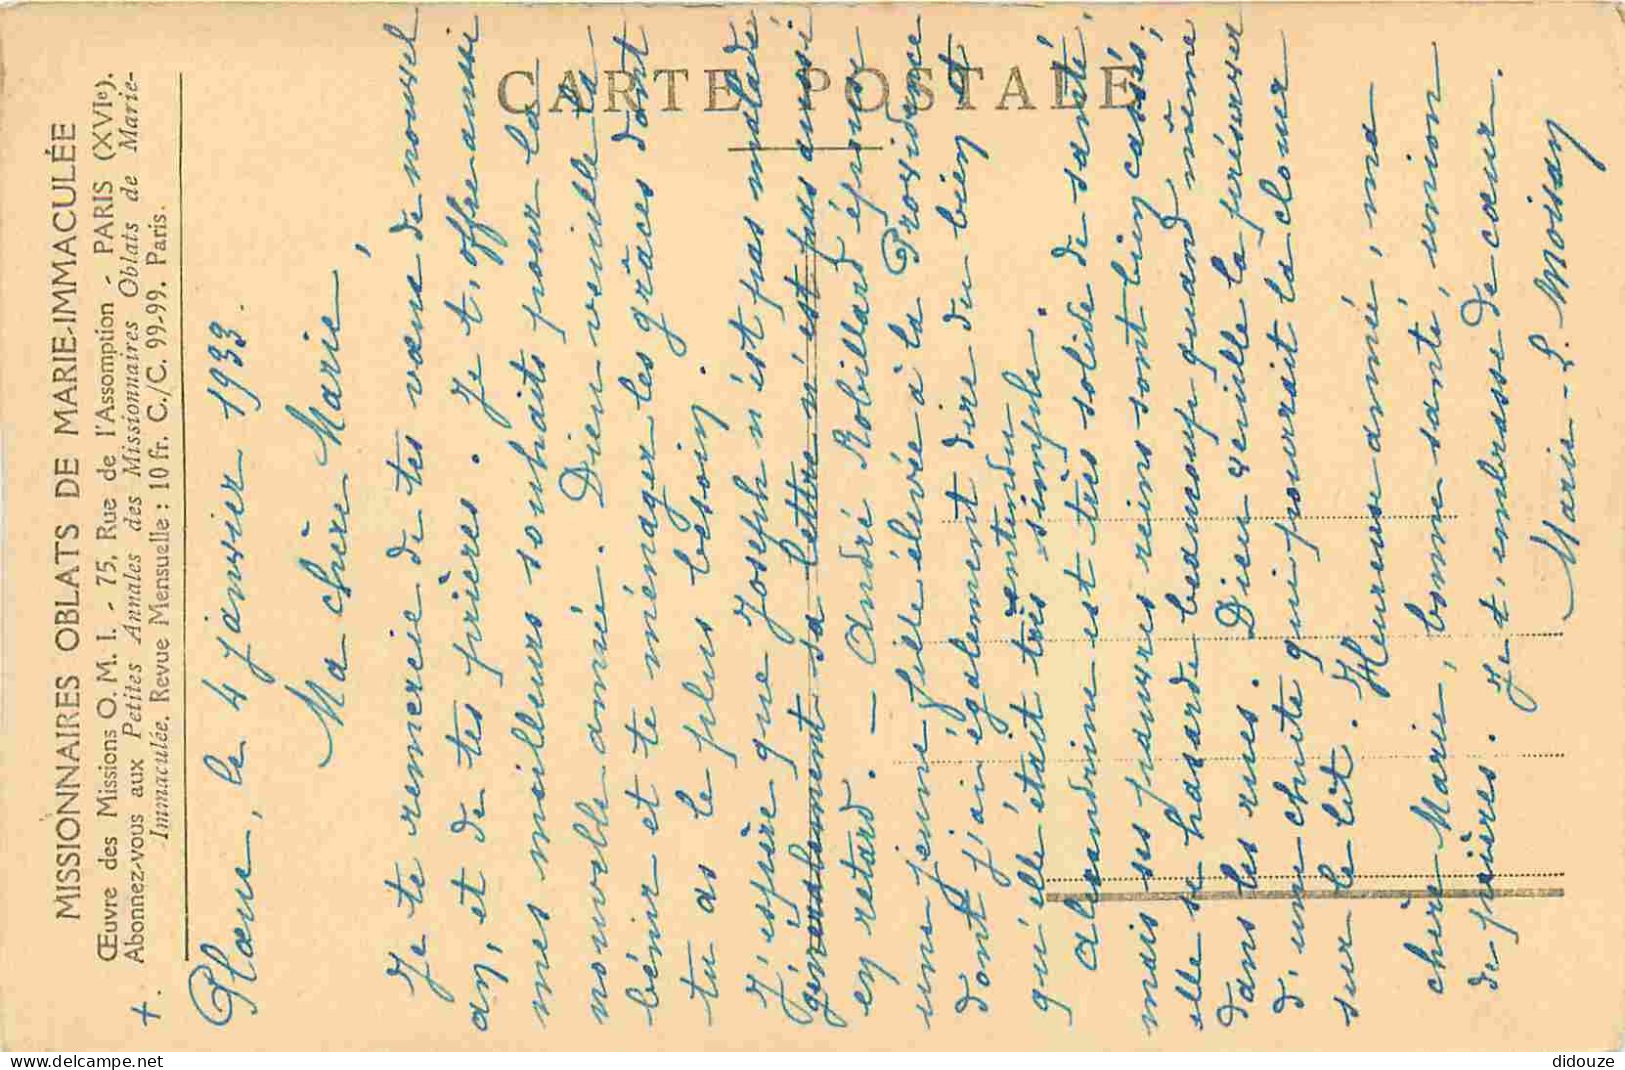 MISSIONNAIRES OBLATS DE MARIE-IMMACULÉE
Œuvre des Missions O. M. I. - 75, Rue de l'Assomption - PARIS (XVIe).
Abonnez-vous aux Petites Annales des Missionnaires Oblats de Marie-
Immaculée. Revue Mensuelle : 10 fr. C./C. 99-99. Paris.
CARTE POSTALE
+.
Plœuc, le 4 janvier 1933.
Ma chère Marie,
Je te remercie de tes vœux de nouvel
an, et de tes prières. Je t'offre aussi
mes meilleurs souhaits pour la
nouvelle année. Dieu veuille te
bénir et te ménager les grâces dont
tu as le plus besoin.
J'espère que Joseph n'est pas malade
généralement sa lettre n'est pas aussi
en retard. — André Robillard épouse
une jeune fille élevée à la Providence
dont j'ai également dire du bien et
entendu
qu'elle était très simple.
Alexandrine est très solide de santé,
mais ses pauvres reins sont bien cassés;
elle se hasarde beaucoup quand même
dans les rues. Dieu veuille la préserver
d'une chute qui pourrait la clouer
sur le lit. Heureuse année, ma
chère Marie, bonne santé, union
de prières. Je t'embrasse de cœur.
Marie-L. Moisan
didouze